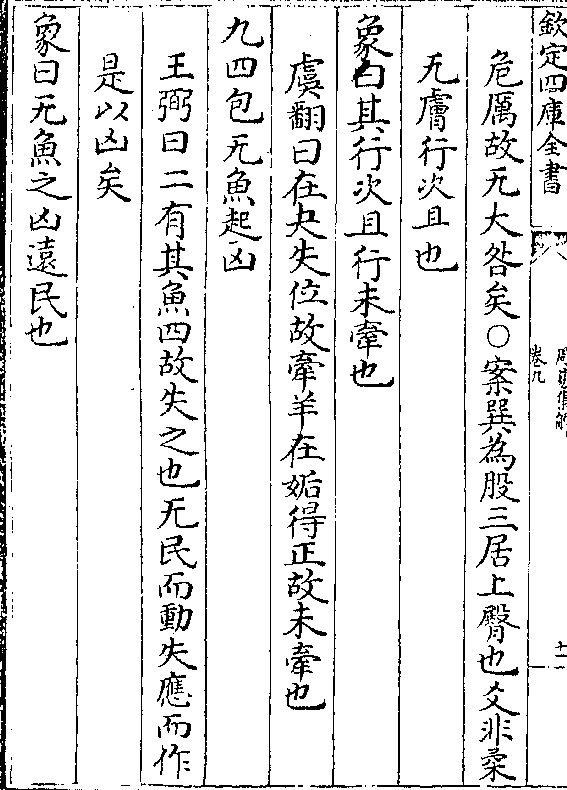 欽定四庫全書
卷九
十一
危厲故无大咎矣○案巽為股三居上臀也爻非柔
无膚行次且也
象曰其行次且行未牽也
虞翻曰在夬失位故牽羊在姤得正故未牽也
九四包无魚起凶
王弼曰二有其魚四故失之也无民而動失應而作
是以凶矣
象曰无魚之凶遠民也